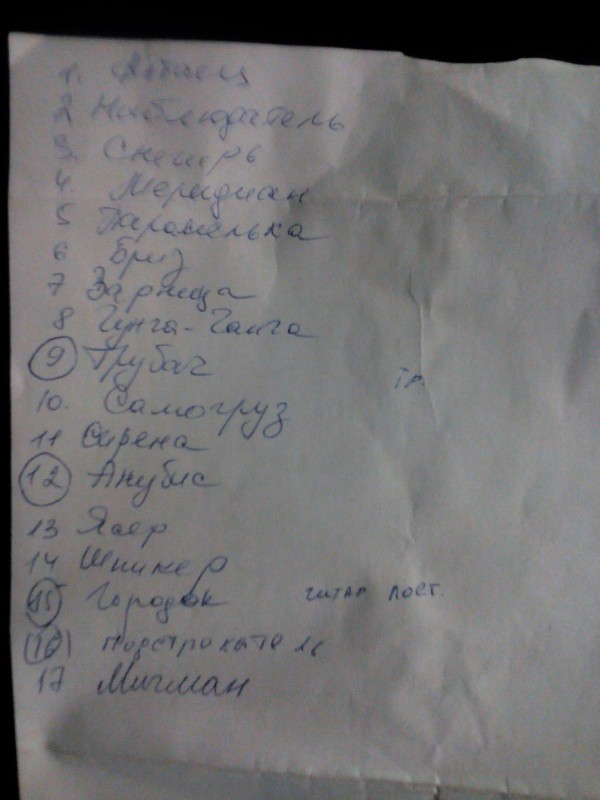 1.
2 Наблюдатель
3. Снегирь
4. Меридиан
5 Карамелька
6 Бриз
7 Зарница
8 Чунга-Чанга
9 Трубач
тр.
10. Самогруз
11 Сирена
12 Анубис
13 Ягер
14 Шпикер
15 Городок гитар пост.
16 подстрекатель
17 Мичман